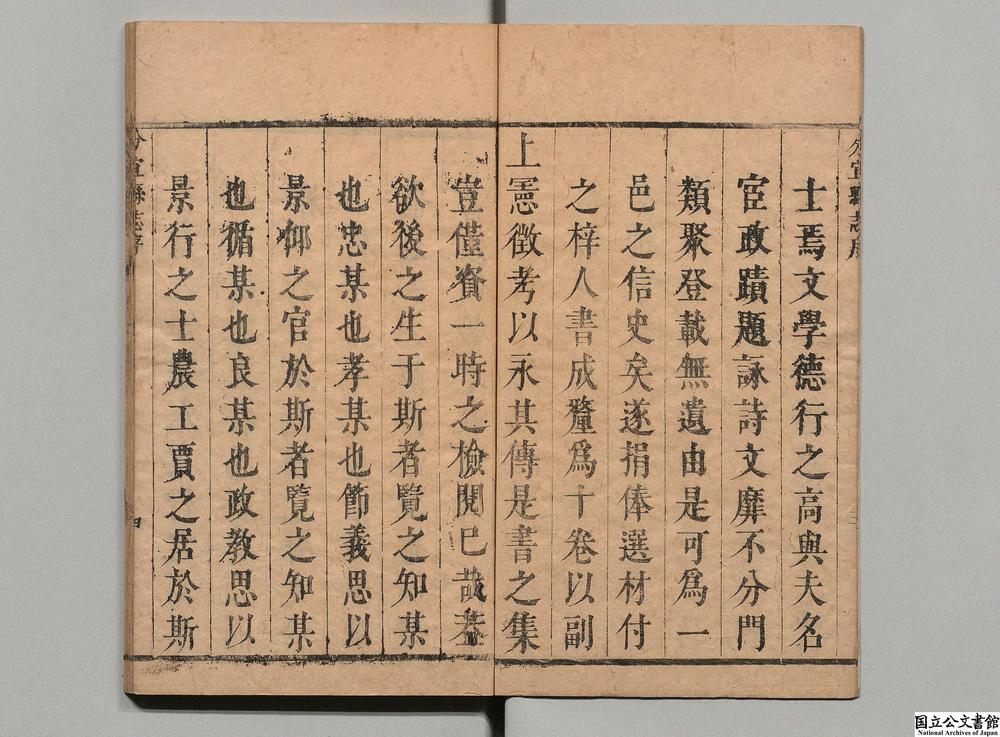 士焉文學德行之高與夫名
宦政蹟題詠詩文靡不分門
類聚登載無遺由是可爲一
邑之信史矣遂捐俸選材付
之梓人書成釐爲十卷以副
上憲徵考以永其傳是書之集
豈僅資一時之檢閱已哉蓋
欲後之生于斯者覽之知某
也忠某也孝某也節義思以
景仰之官於斯者覽之知某
也循某也良某也政教思以
景行之士農工賈之居於斯
分宜縣志序
三
分宜縣志序
四
国立公文書館
National Archives of Japan